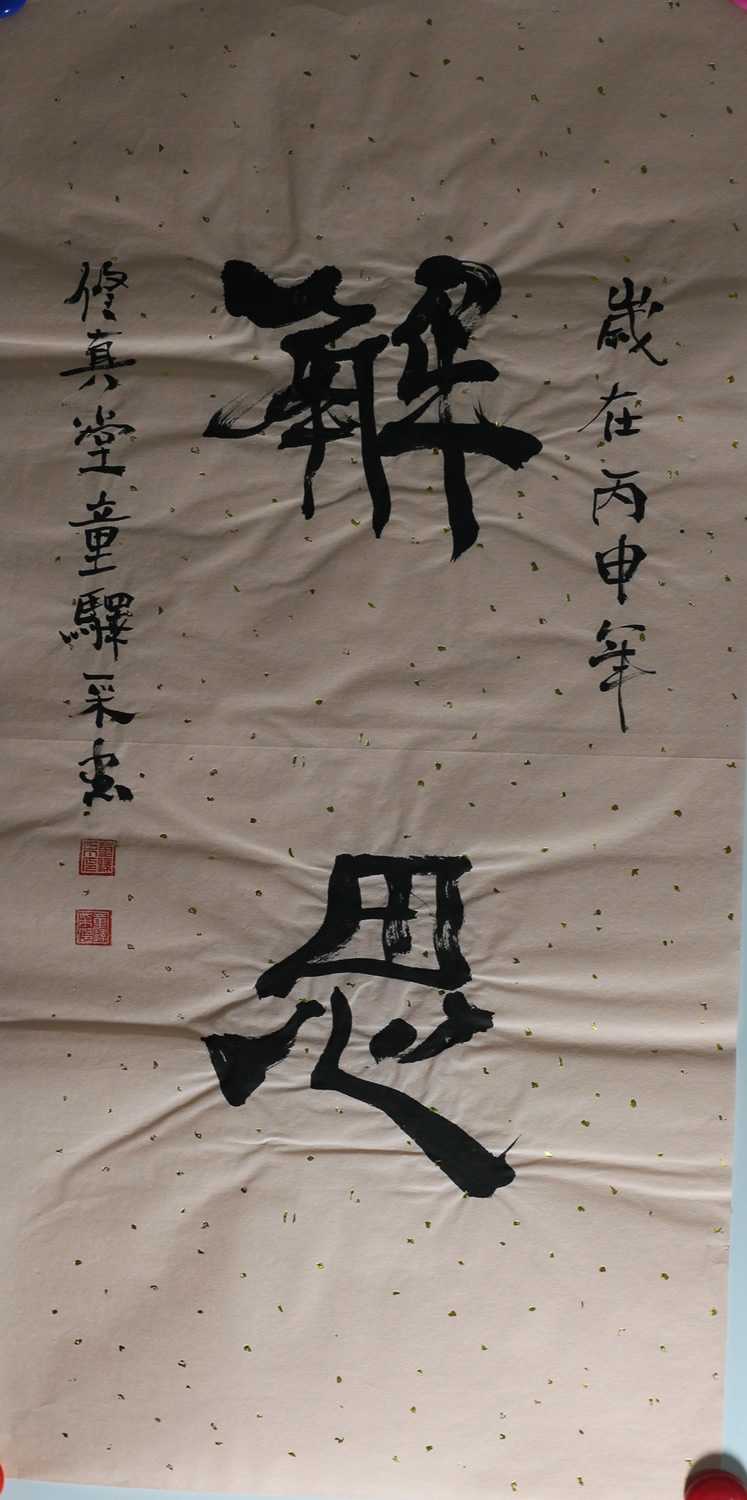 歲在丙申年
解思
修真堂童驛采書